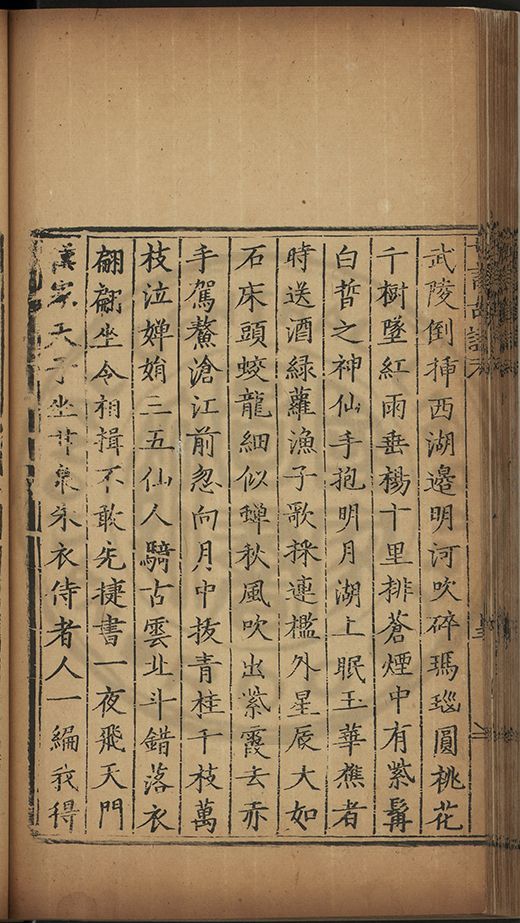 武陵倒揷西湖邊明河吹碎瑪瑙圓桃花
千樹墜紅雨垂楊十里排蒼煙中有紫髯
白皙之神仙手抱明月湖上眠玉華樵者
時送酒綠蘿漁子歌採連檻外星辰大如
石床頭蛟龍細似蟬秋風吹出紫霞去赤
手駕鰲滄江前忽向月中拔青桂千枝萬
枝泣嬋娟三五仙人騎古雲北斗錯落衣
翩翩坐令相揖不敢先捷書一夜飛天門
漢家天子坐甘泉朱衣侍者人一編我得